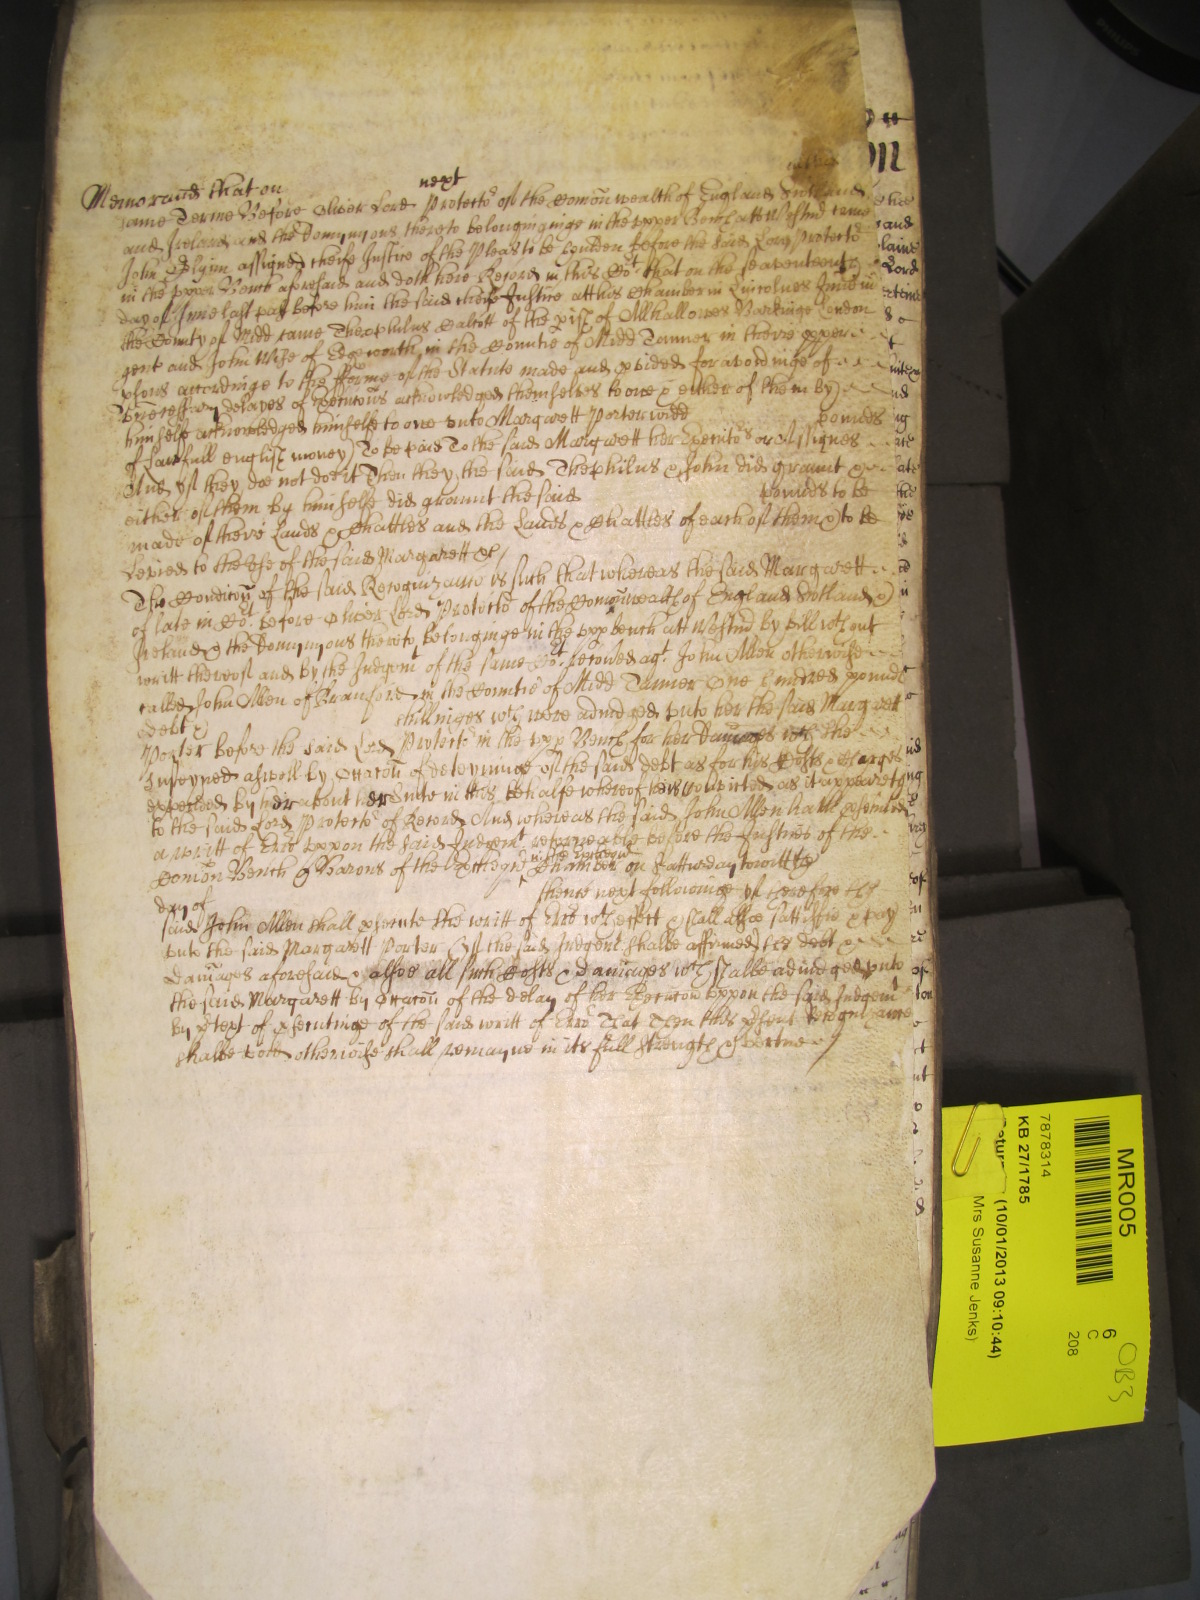 Memorand that on next
same Terme Before Oliver Lord Protector of the Comon wealth of England Scotland
and Ireland and the Dominyons thereto belonginge in the upper Bench att Westmr came
John Glynn assigned cheife Justice of the Pleas to be houlden before the said Lord Protector
in the upper Bench aforesaid and doth here Record in this Cort that on the seaventeenth
day of June last past before him the said cheife Justice att his Chamber in Lincolnes Inne in
the County of Midd came Theophilus Calcott of the pish of Allhallowes Barkinge London
gent and John Wise of Edgeworth in the Countie of Midd Tanner in theire pper
psons accordinge to the fforme of the Statute made and pvided for avoydinge of
Unecessary delayes of Executions acknowledged themselves to owe & either of them by
himselfe acknowledged himselfe to owe unto Margarett Porter widd pounds
of lawfull english money To be paid To the said Margarett her Executors or Assignes
And yf they doe not doe it Then they the said Theophilus & John did graunt &
either of them by himselfe did graunt the said pounds to be
made of theire Lands & Chattles and the Lands & Chattles of each of them & to be
Levied to the Use of the said Margarett &c
The Condicon of the said Recognizance is such that whereas the said Margarett
of late in Cort before Oliver Lord Protector of the Comonwealth of England Scotland &
Ireland & the Dominyons thereto belonginge in the upp bench att Westmr by bill wthout
writt thereof and by the Judgmt of the same Cort recoved agt John Allen otherwise
called John Allen of Brainford in the Countie of Midd Tanner One hundred pounds
debt & shillinges wch were adiudged unto her the said Margarett
Porter before the said Lord Protector in the upp Bench for her Damages wch she
Susteyned aswell by Occacon of deteyninge of the said debt as for his Costs & Charges
expended by her about her Suite in this behalfe whereof hee is convicted as it appeareth
to the said Lord Protector of Record And whereas the said John Allen hath psecuted
a writt of Error uppon the said Judgemt returneable before the Justices of the
Comon Bench & Barons of the Exchequer in the Exchequer Chamber on Satturday to witt the
day of thence next followinge yf therefore the
said John Allen shall psecute the writt of Error wth effect & shall alsoe sattisfie & pay
unto the said Margarett Porter (yf the said Judgemt shalbe affirmed) the debt &
Damages aforesaid & alsoe all such Costs & damages wch shalbe adiudged unto
the said Margarett by Occacon of the delay of her Execucon uppon the said Judgemt
by ptext of psecutinge of the said writt of Error That Then this psent Recognizance
shalbe void otherwise shall remayne in its full strength & vertue
MR005
7878314
KB 27/1785
(10/01/2013 09:10:44)
Mrs Susanne Jenks)
6
C
208
OB3
PHILIPS